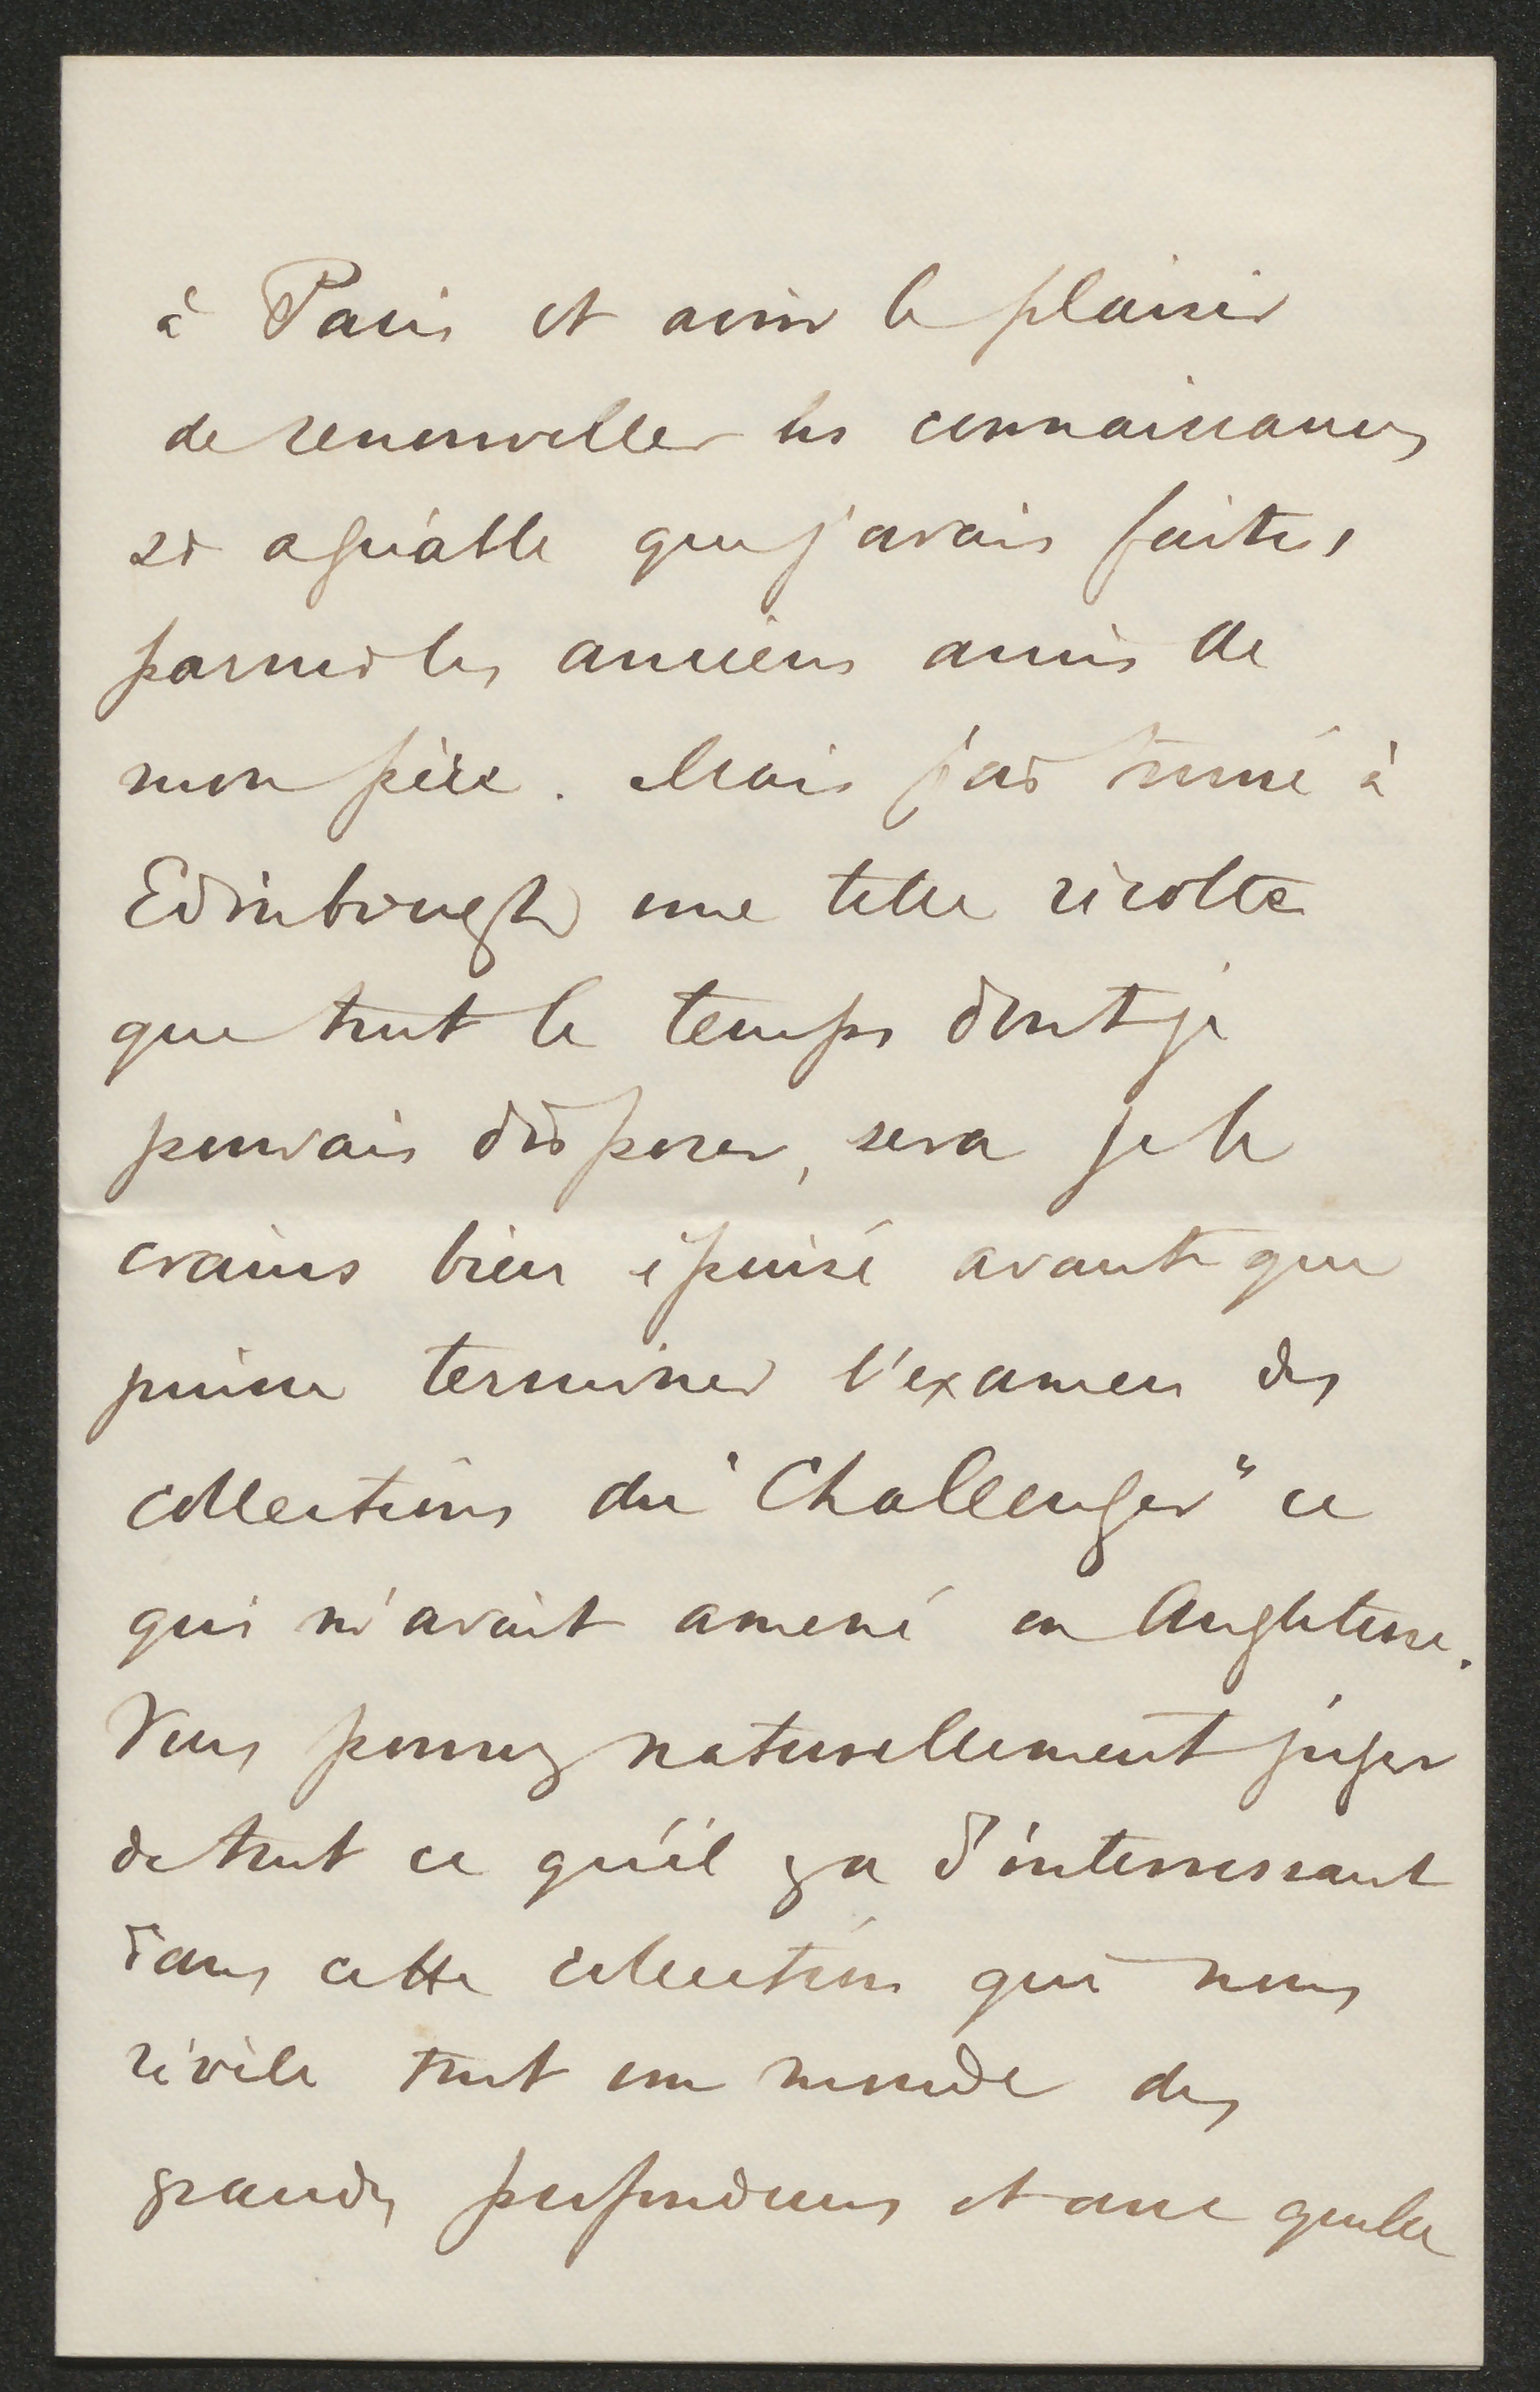 à Paris et avoir le plaisir
de renouveller les connaissances
si agréable que j'avais faites
parmi les anciens amis de
mon père. Mais j'ai trouvé à
Edinbourgh une telle récolte
que tout le temps dont je
pouvais disposer, sera je le
crains bien épuisé avant que
puisse terminer l'examen des
collections du "Challenger" ce
qui m'avait amené en Angleterre.
Vous pouvez naturellement juger
de tout ce qu'il y a d'interressant
dans cette collection qui nous
révèle tout un monde des
grandes profondeurs et avec quelle